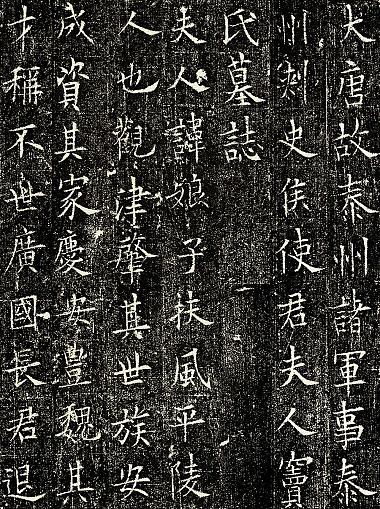 大唐故泰州諸軍事泰
州刺史侯使君夫人竇
氏墓誌
夫人諱娘子扶風平陵
人也觀津肇其世族安
成資其家慶安灃魏其
才稱不世廣國長君退